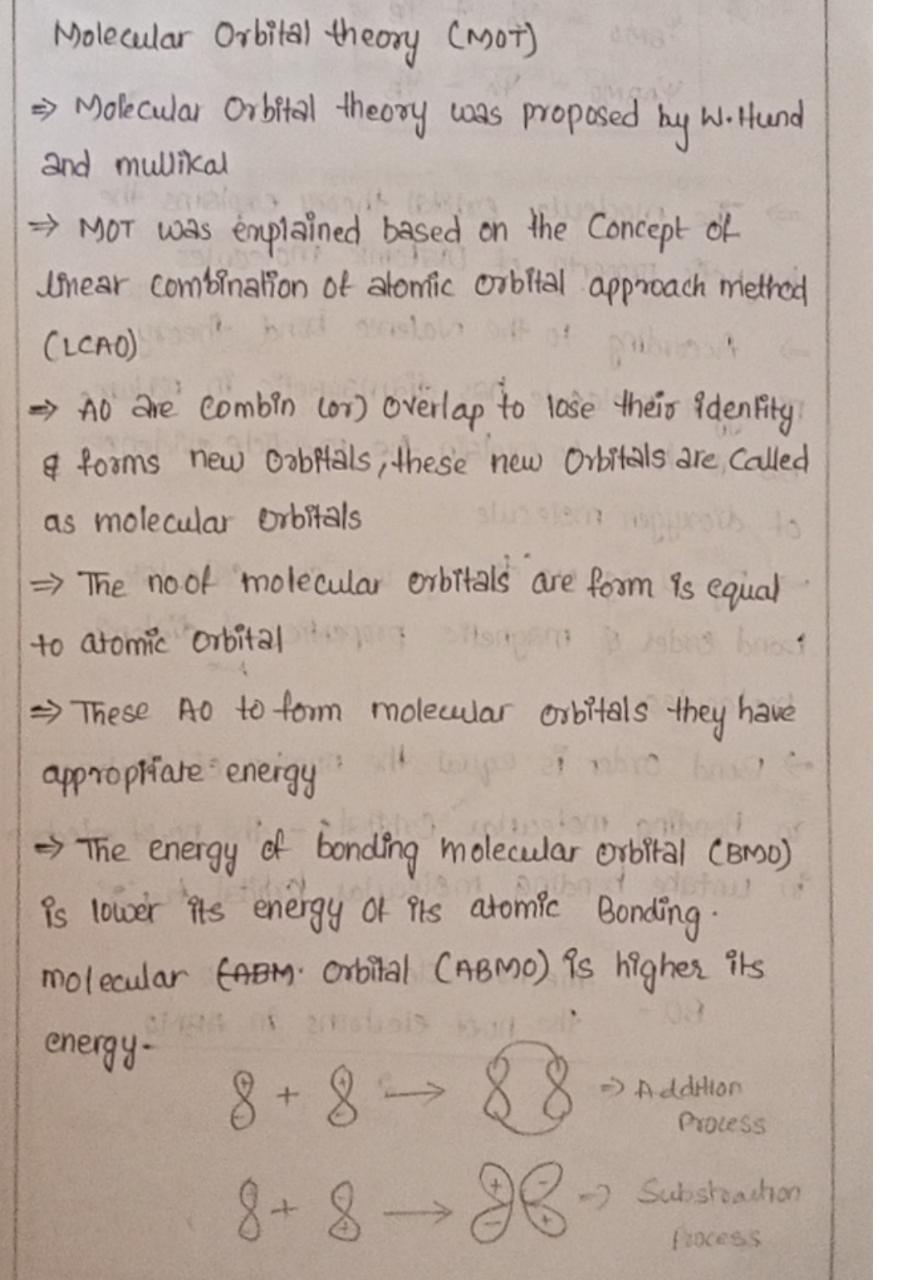 Molecular Orbital theory (MOT)
⇒ Molecular Orbital theory was proposed by W. Hund
and mullikal
⇒ MOT was explained based on the Concept of
linear combination of atomic orbital approach method
(LCAO)
⇒ AO are combin (or) overlap to lose their identity
& forms new Oobitals, these new Orbitals are called
as molecular orbitals
⇒ The no of molecular orbitals are form is equal
to atomic orbital
⇒ These AO to form molecular orbitals they have
appropriate energy
⇒ The energy of bonding molecular orbital (BMO)
is lower its energy of its atomic Bonding.
molecular (ABM. orbital (ABMO) is higher its
energy-
8 + 8 → 8 8 ⇒ Addition
Process
8 + 8 → 8 8 ⇒ Substraction
Process